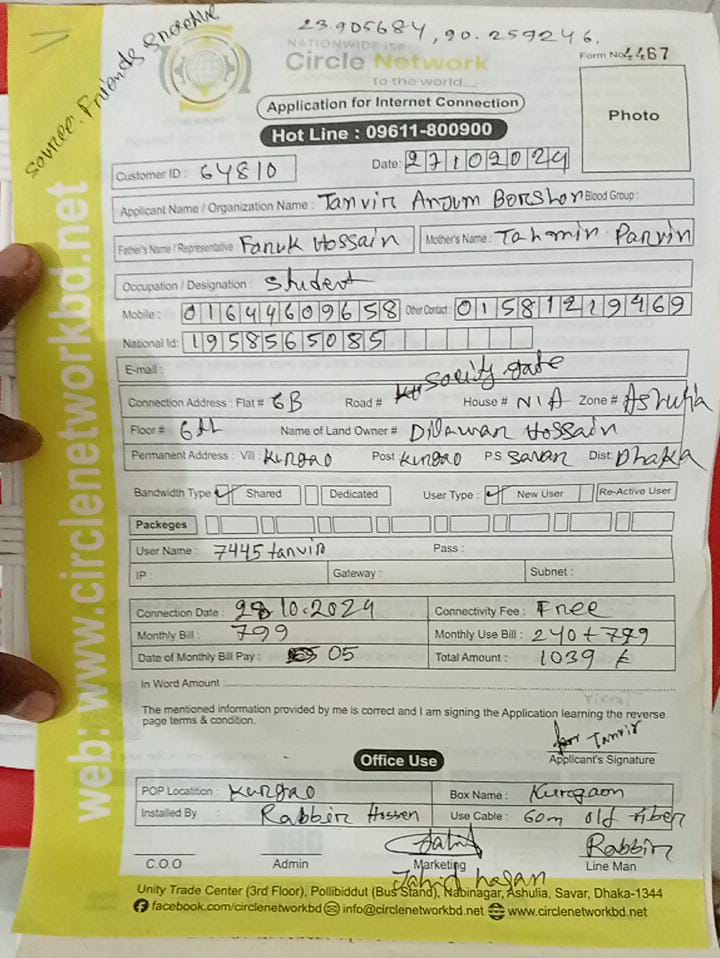 Source: Friends Snackie
23.905684, 90.259246.
NATIONWIDE ISP
Circle Network
Connecting to the world....
Form No. 4467
Application for Internet Connection
Photo
Hot Line : 09611-800900
Customer ID : 64810
Date: 27102024
Applicant Name / Organization Name : Tanvir Anjum Borshon Blood Group :
Father's Name / Representative : Faruk Hossain Mother's Name : Tahmin Parvin
Occupation / Designation : Student
Mobile : 01644609658 Other Contact : 01581219469
National Id: 1958565085
E-mail :
Connection Address : Flat # 6B Road # Socity gate House # N/A Zone # Ashulia
Floor # 6th Name of Land Owner # Dilawar Hossain
Permanent Address : Vill : Kurgao Post : Kurgao PS Savar Dist: Dhaka
Bandwidth Type Shared Dedicated User Type : New User Re-Active User
Packeges
User Name : 7445tanvir Pass :
IP : Gateway : Subnet :
Connection Date : 28 10.2024 Connectivity Fee : Free
Monthly Bill : 799 Monthly Use Bill : 240+799
Date of Monthly Bill Pay : 05 Total Amount : 1039
In Word Amount :
The mentioned information provided by me is correct and I am signing the Application learning the reverse
page terms & condition.
for Tanvir
Applicant's Signature
Office Use
POP Locatition : Kurgao Box Name : Kurgaon
Installed By : Rabbir Hossen Use Cable : 60m old fiber
Jahid Rabbir
C.O.O Admin Marketing Line Man
Jahid hasan
Unity Trade Center (3rd Floor), Pollibiddut (Bus Stand), Nabinagar, Ashulia, Savar, Dhaka-1344
facebook.com/circlenetworkbd info@circlenetworkbd.net www.circlenetworkbd.net
web: www.circlenetworkbd.net